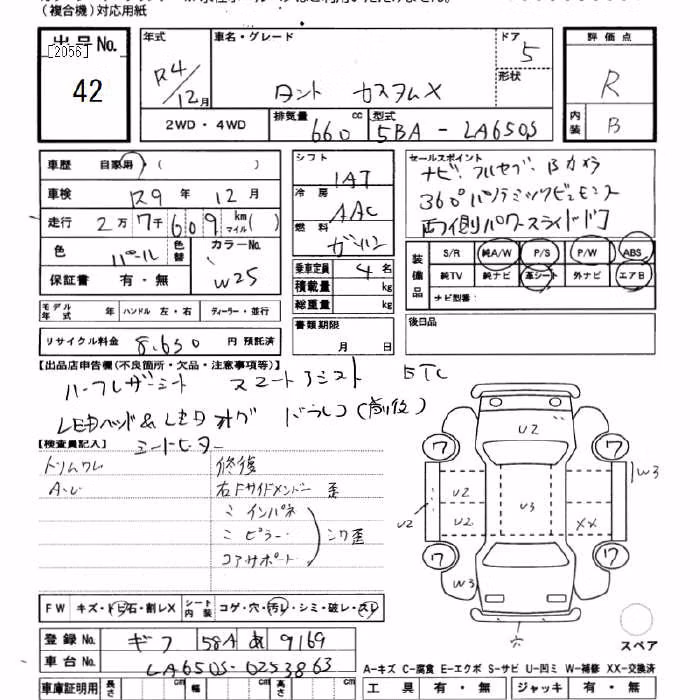 (複合機)対応用紙
出品No.
[2056]
42
年式
R4/12月
車名・グレード
タント カスタムX
ドア
5
形状
評価点
R
内装
B
2WD・4WD
排気量
660
cc
型式
5BA-LA650S
車歴 自家用・( )
車検 R9年 12月
走行 2万7千609 km マイル( )
色 パール 色替
カラーNo.
W25
保証書 有・無
モデル年式 年 ハンドル 左・右 ディーラー・並行
リサイクル料金 8,650 円 預託済
シフト
IAT
冷房
AAC
燃料
ガソリン
乗車定員 4名
積載量 kg
総重量 kg
書類期限
月 日
セールスポイント
ナビ・フルセグ・Bカメラ
360°パノラミックビューモニター
両側パワースライドドア
装備品
S/R 純A/W P/S P/W ABS
純TV 純ナビ 革シート 外ナビ エアB
ナビ型番:
後日品
【出品店申告欄(不良箇所・欠品・注意事項等)】
ハーフレザーシート スマートアシスト ETC
LEDヘッド&LEDフォグ ドラレコ(前後)
シートヒーター
【検査員記入】
トリムワレ
修復
A・U
右Fサイドメンバー 歪
〃 インパネ
〃 ピラー
シワ歪
コアサポート
FW キズ・トビ石・割レX シート内装 コゲ・穴・汚レ・シミ・破レ・スレ
登録No. ギフ 581 あ 9169
車台No. LA650S-0253863
車庫証明用 長さ cm 幅 cm 高さ cm
U2
ワ
ワ
W3
U2
U2
U2
U3
XX
ワ
ワ
W3
スペア
A-キズ C-腐食 E-エクボ S-サビ U-凹ミ W-補修 XX-交換済
工具 有・無 ジャッキ 有・無